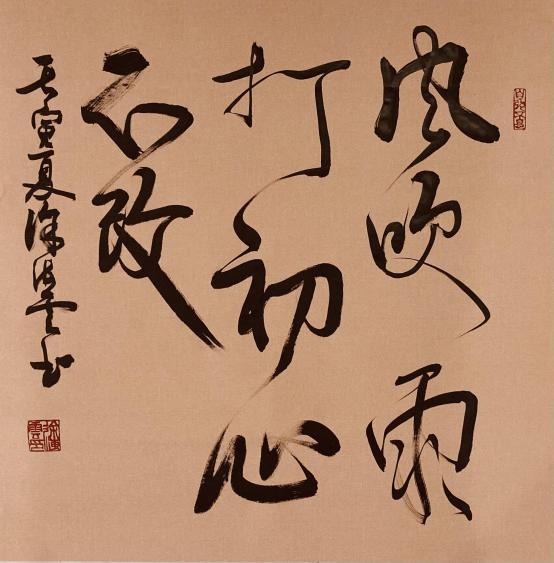 风吹雨
打初心
不改
壬寅夏徐云书